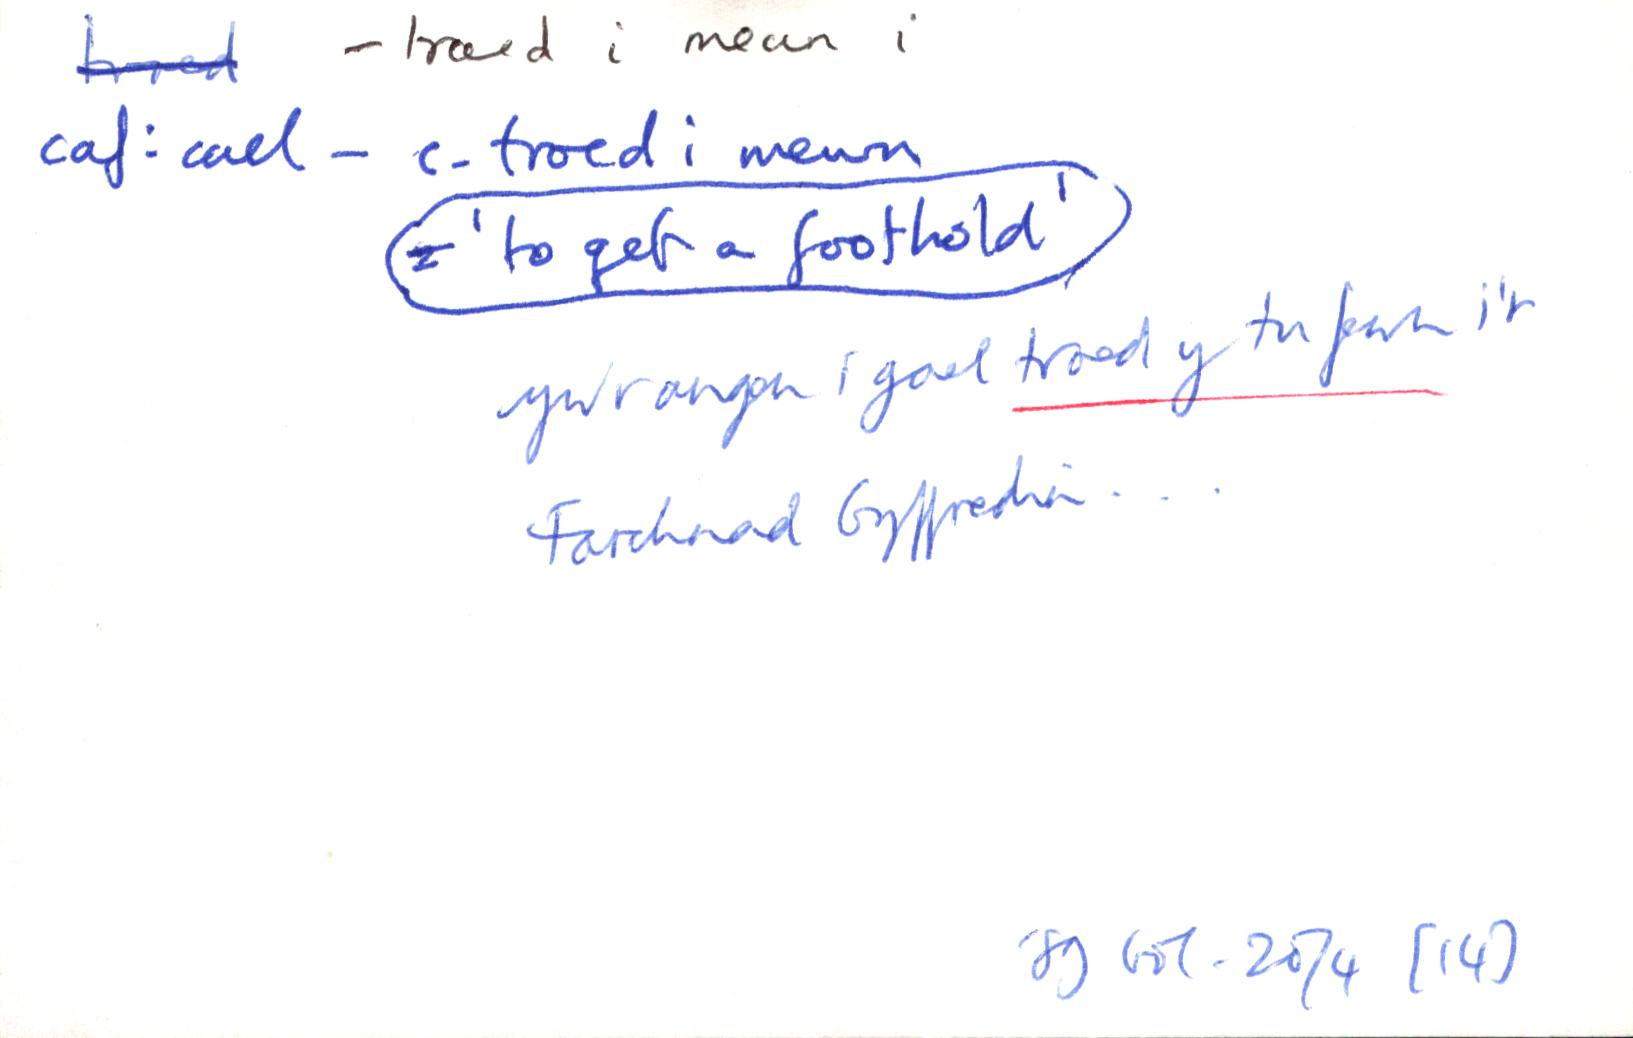 troed - troed i mewn i
caf: cael - c- troed i mewn
= 'to get a foothold'
yw'r angen i gael troed y tu fewn i'r
Farchnad Gyffredin....
'89 Gol - 20/4 [14]